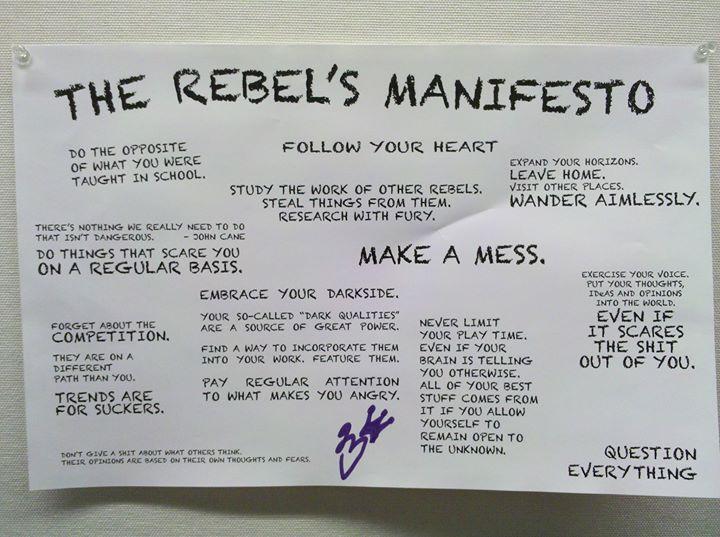 THE REBEL'S MANIFESTO
DO THE OPPOSITE
OF WHAT YOU WERE
TAUGHT IN SCHOOL.
FOLLOW YOUR HEART
STUDY THE WORK OF OTHER REBELS.
STEAL THINGS FROM THEM.
RESEARCH WITH FURY.
EXPAND YOUR HORIZONS.
LEAVE HOME.
VISIT OTHER PLACES.
WANDER AIMLESSLY.
THERE'S NOTHING WE REALLY NEED TO DO
THAT ISN'T DANGEROUS. - JOHN CANE
DO THINGS THAT SCARE YOU
ON A REGULAR BASIS.
MAKE A MESS.
EMBRACE YOUR DARKSIDE.
YOUR SO-CALLED "DARK QUALITIES"
ARE A SOURCE OF GREAT POWER.
FIND A WAY TO INCORPORATE THEM
INTO YOUR WORK. FEATURE THEM.
PAY REGULAR ATTENTION
TO WHAT MAKES YOU ANGRY.
EXERCISE YOUR VOICE.
PUT YOUR THOUGHTS,
IDeAS AND OPINIONS
INTO THE WORLD.
EVEN IF
IT SCARES
THE SHIT
OUT OF YOU.
FORGET ABOUT THE
COMPETITION.
THEY ARE ON A
DIFFERENT
PATH THAN YOU.
TRENDS ARE
FOR SUCKERS.
NEVER LIMIT
YOUR PLAY TIME.
EVEN IF YOUR
BRAIN IS TELLING
YOU OTHERWISE.
ALL OF YOUR BEST
STUFF COMES FROM
IT IF YOU ALLOW
YOURSELF TO
REMAIN OPEN TO
THE UNKNOWN.
DON'T GIVE A SHIT ABOUT WHAT OTHERS THINK.
THEIR OPINIONS ARE BASED ON THEIR OWN THOUGHTS AND FEARS.
QUESTION
EVERYTHING